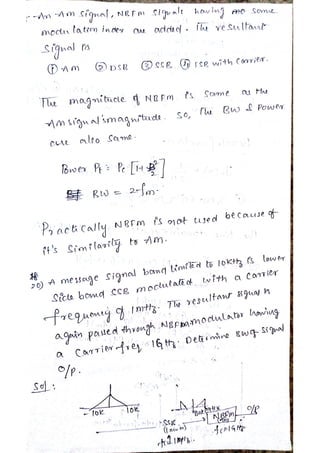 - An Am Signal, NBFm Signals having same
modulation index are added. The resultant
signal is
① Am ② DSB ③ SSB ④ SSB with Carrier.
The magnitude of NBFm is same as the
Am signal's magnitude. So, The BW & Power
are also same.
Power Pt = Pc [1+
BW = 2fm.
Practically NBFm is not used because of
it's Similarity to Am.
20) A message signal band limited to 10KHz is lower
Side band SSB modulated with a carrier
frequency of 1MHz. The resultant signal is
again passed through NBFm modulator having
a Carrier freq 1GHz. Determine BW of signal
O/P.
Sol:
-10K 10K SSB NBFm O/P
fc 1GHz